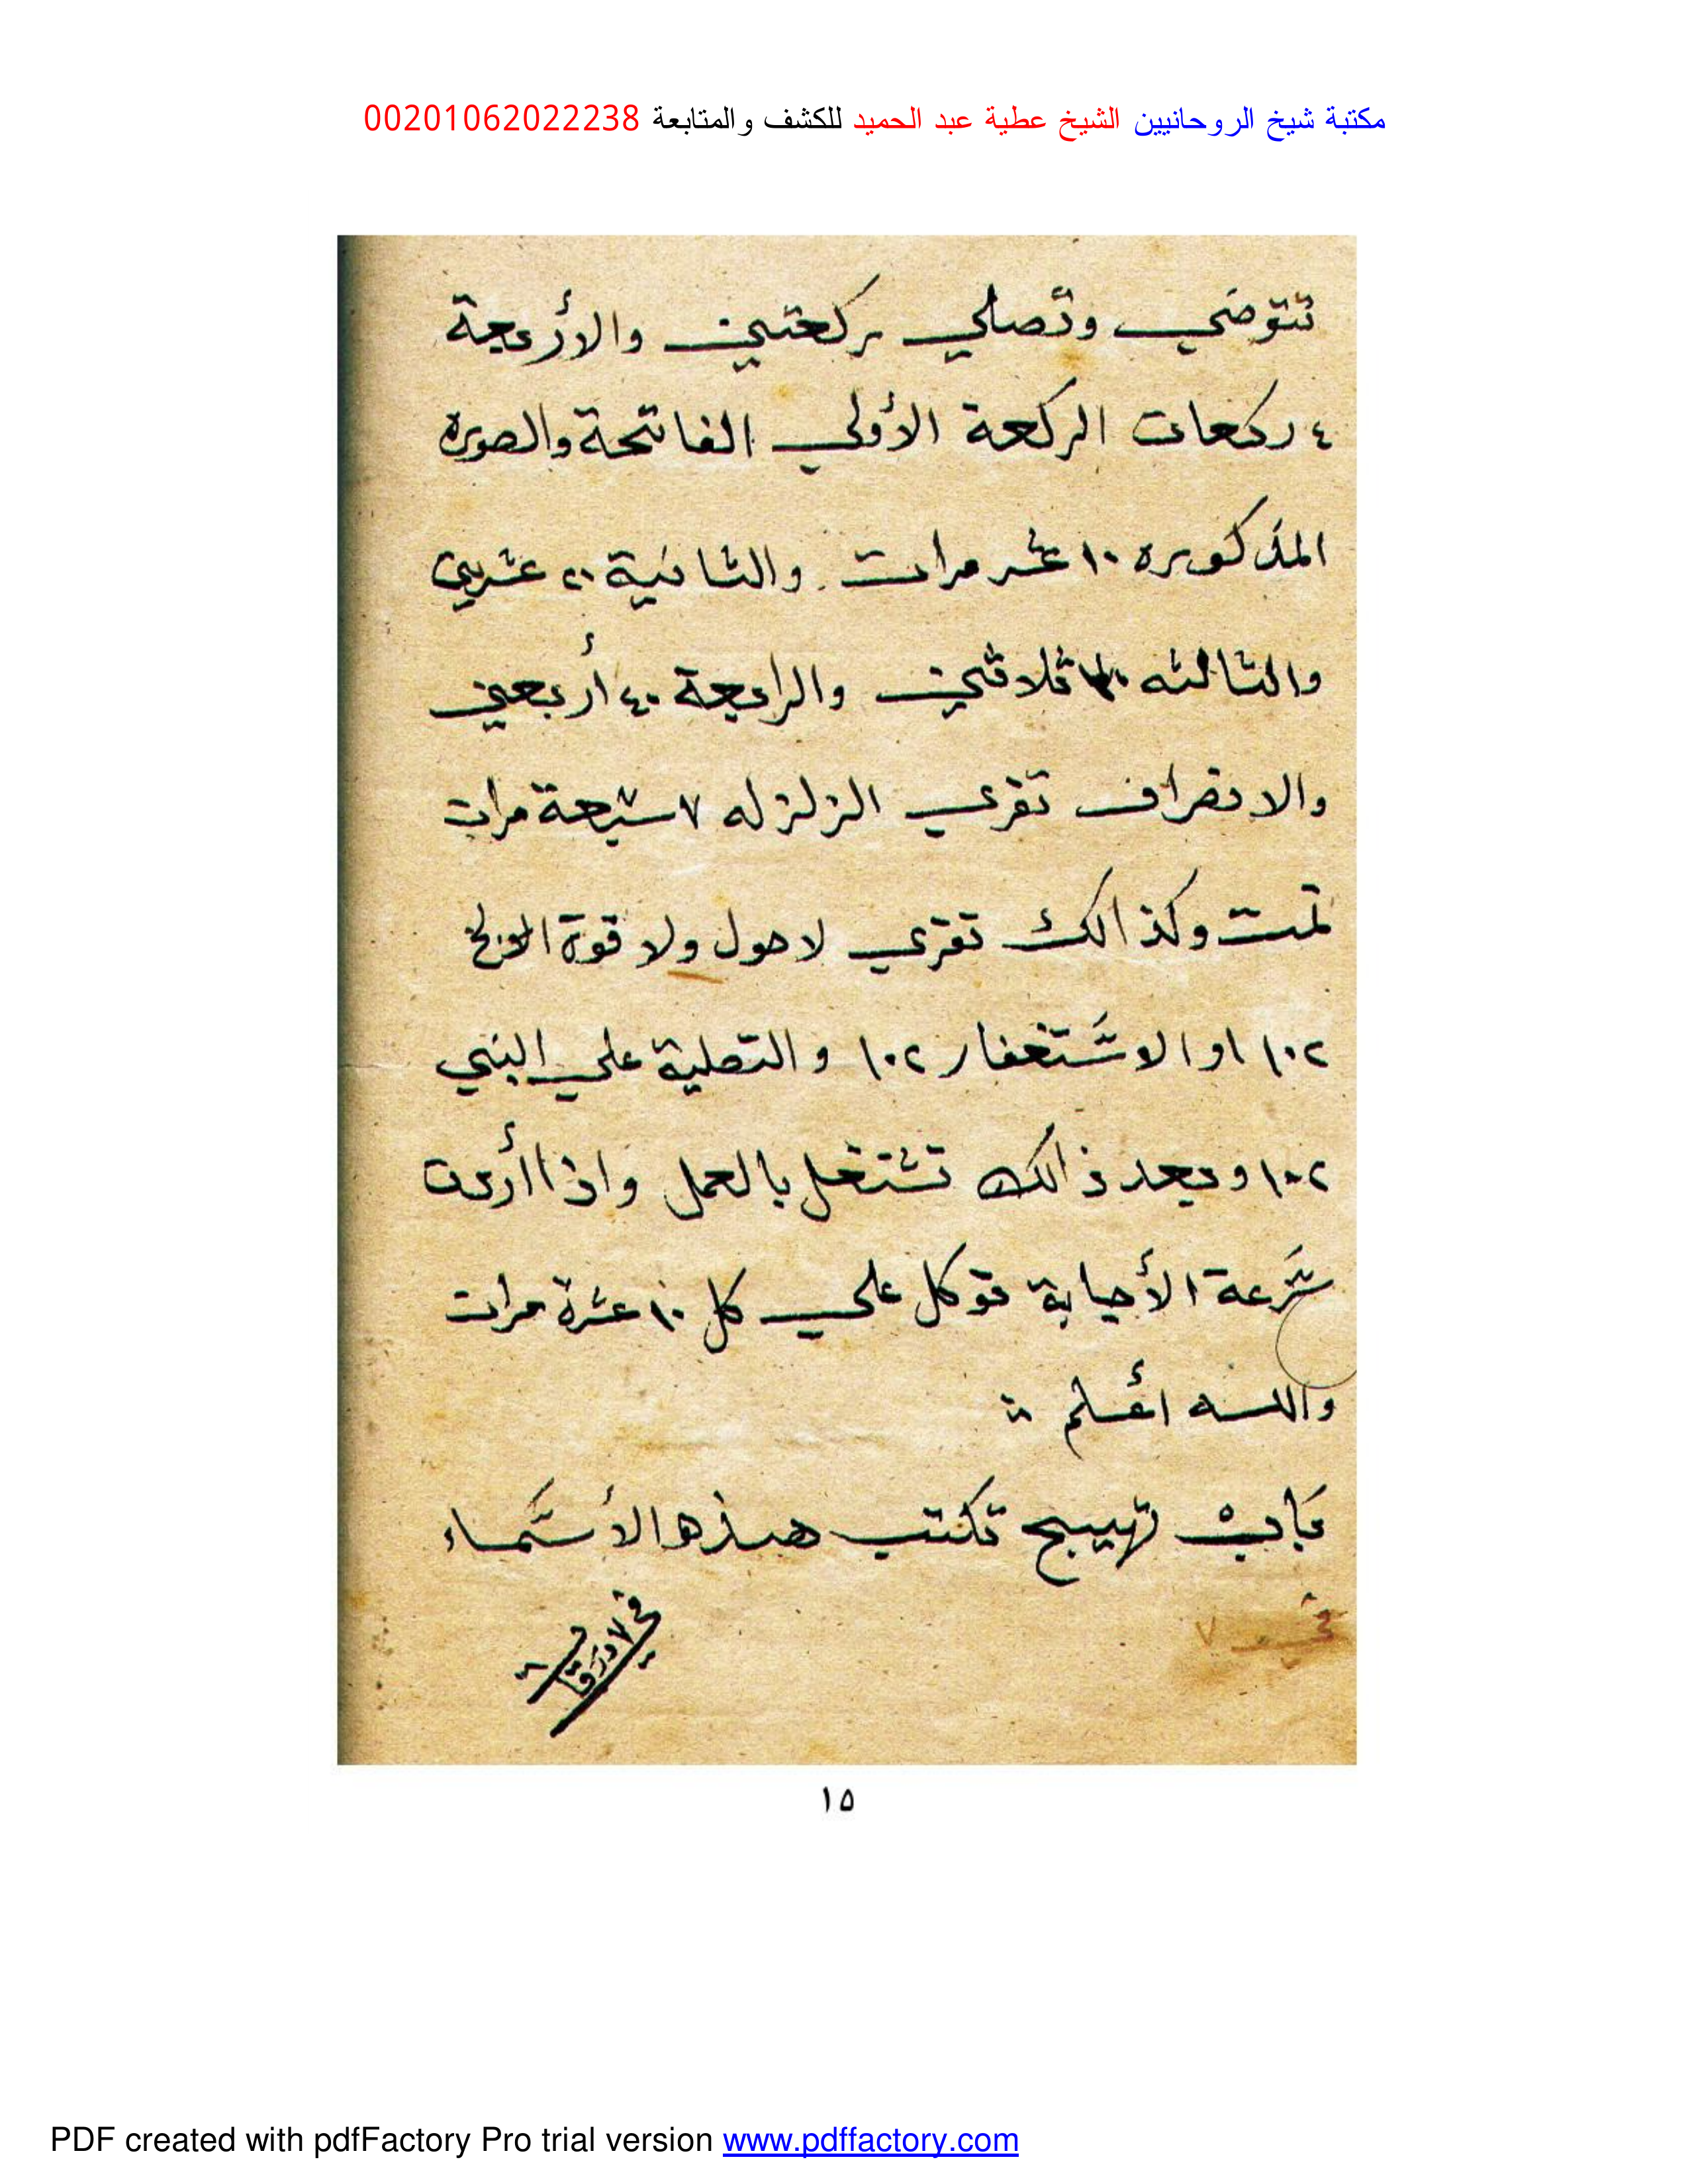 مكتبة شيخ الروحانيين الشيخ عطية عبد الحميد للكشف والمتابعة 00201062022238
تتوضي وتصلي ركعتين والأربعة
٤ ركعات الركعة الأولي الفاتحة والصوره
المذكوره ١٠ عشر مرات والثانية ٢٠ عشرين
والثالثه ثلاثين والرابعة ٤٠ أربعين
والانصراف تقرء الزلزله ٧ سبعة مرات
تمت وكذالك تقرء لا حول ولا قوة الا الخ
١٠٢ او الاستغفار ١٠٢ والتصلية علي النبي
١٠٢ وبعد ذالك تشتغل بالعمل واذا أردت
سرعة الأجابة توكل علي كل ١٠ عشرة مرات
والله أعلم
باب تهييج تكتب هذه الأسماء
في ٧
في ٧ ورقات
١٥
PDF created with pdfFactory Pro trial version www.pdffactory.com